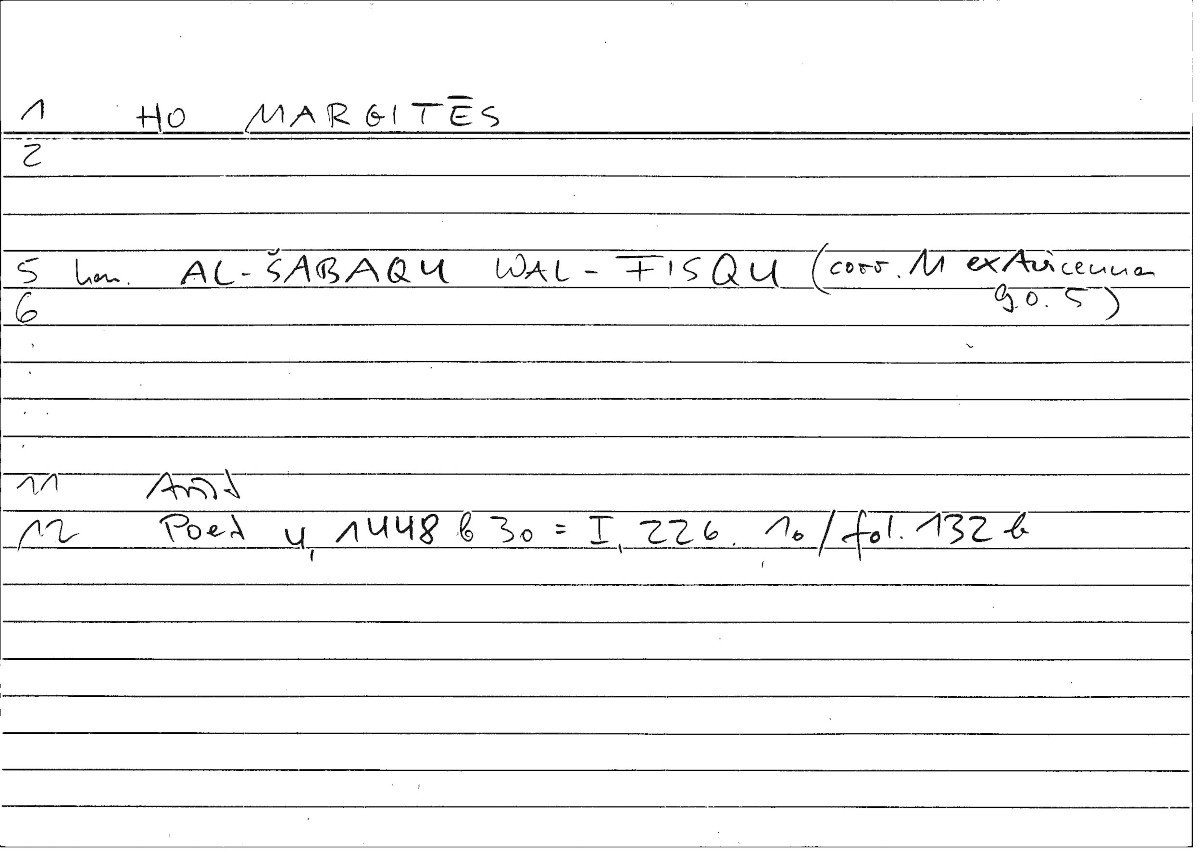 1 HO MARGITĒS
2
5 hom. AL-ŠABAQU WAL-FISQU (corr. M ex Avicenna
90.5)
6
11 Arist
12 Poet 4, 1448 b 30 = I, 226. 10 / fol. 132 b